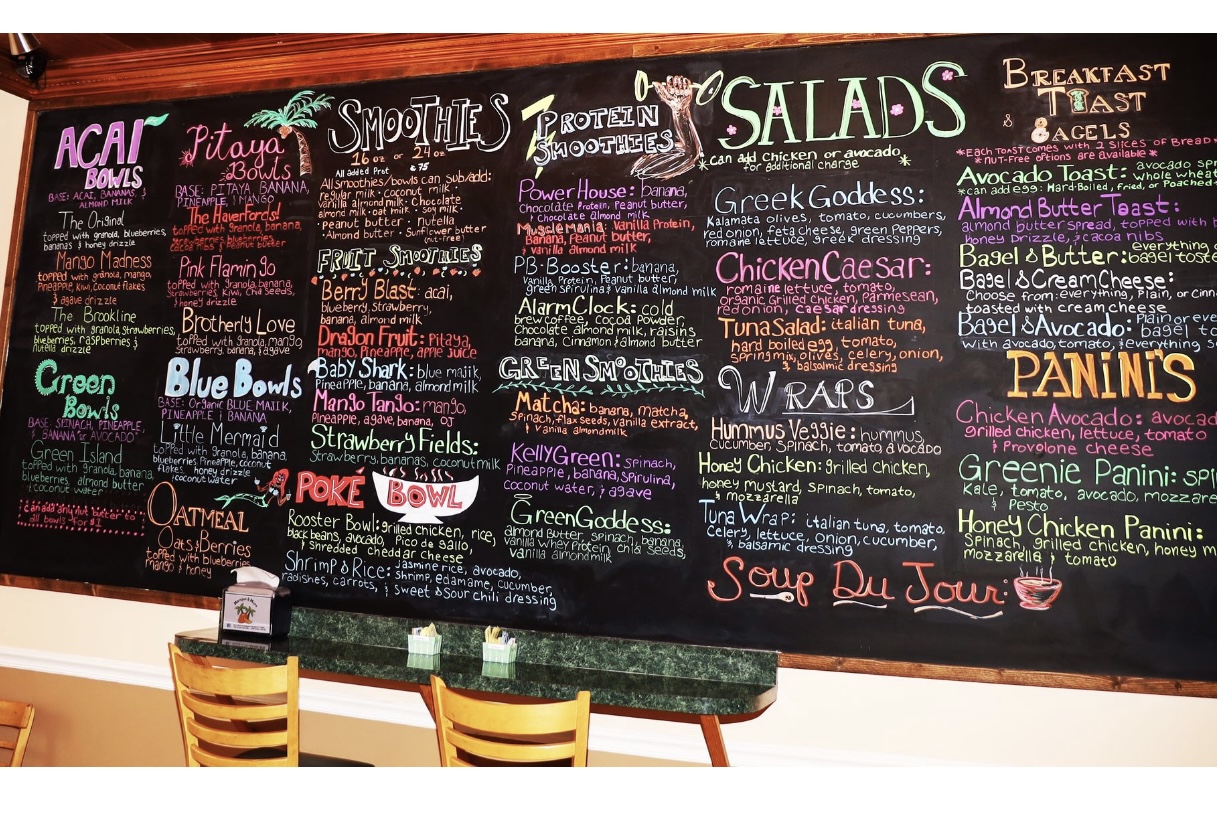 ACAI
BOWLS
BASE: ACAI, BANANAS, &
ALMOND MILK
The Original
topped with granola, blueberries,
bananas & honey drizzle
Mango Madness
topped with granola, mango,
Pineapple, Kiwi, Coconut flakes
& agave drizzle
The Brookline
topped with granola, strawberries,
blueberries, raspberries &
nutella drizzle
Green
Bowls
BASE: SPINACH, PINEAPPLE,
& BANANA or AVOCADO
Green Island
topped with granola, banana,
blueberries, almond butter,
& coconut water
all bowls for $1
Pitaya
Bowls
BASE: PITAYA, BANANA,
PINEAPPLE, & MANGO
The Haverfords!
topped with granola, banana,
Peanut butter
Pink Flamingo
topped with granola, banana,
Strawberries, Kiwi, Chia Seeds,
& honey drizzle
Brotherly Love
topped with granola, mango
Strawberry, banana, & agave
Blue Bowls
BASE: Organic BLUE MAJIK,
PINEAPPLE & BANANA
Little Mermaid
topped with Granola, banana,
blueberries, Pineapple, coconut
flakes, honey drizzle
& coconut water
OATMEAL
Oats & Berries
topped with blueberries
mango & honey
SMOOTHIES
16 oz or 24 oz
All added Prot .75
All smoothies/bowls can sub/add:
regular milk · Coconut milk ·
vanilla almond milk · Chocolate
almond milk · oat milk · Soy milk ·
· Peanut butter · Nutella
· Almond butter · Sunflower butter
(nut-free)
FRUIT SMOOTHIES
Berry Blast: acai,
blueberry, strawberry,
banana, almond milk
Dragon Fruit: Pitaya,
mango, Pineapple, apple juice
Baby Shark: blue majik,
Pineapple, banana, almond milk
Mango Tango: mango,
Pineapple, agave, banana, OJ
Strawberry Fields:
Strawberry, bananas, coconut milk
POKÉ BOWL
Rooster Bowl: grilled chicken, rice,
black beans, avocado, Pico de gallo,
& shredded cheddar cheese
Shrimp & Rice: Jasmine rice, avocado,
radishes, carrots, Shrimp, edamame, cucumber,
& sweet & Sour chili dressing
PROTEIN
SMOOTHIES
Power House: banana,
Chocolate Protein, Peanut butter,
& Chocolate almond milk
Muscle Mania: Vanilla Protein,
Banana, Peanut butter,
& vanilla almond milk
PB-Booster: banana,
Vanilla Protein, Peanut butter,
green spirulina & vanilla almond milk
Alarm Clock: cold
brew coffee, cocoa powder,
Chocolate almond milk, raisins
banana, Cinnamon & almond butter
GREEN SMOOTHIES
Matcha: banana, matcha,
Spinach, flax seeds, vanilla extract,
& Vanilla almondmilk
Kelly Green: spinach,
Pineapple, banana, spirulina,
coconut water, & agave
Green Goddess:
almond butter, spinach, banana,
vanilla Whey Protein, chia seeds,
Vanilla almond milk
SALADS
*can add chicken or avocado*
for additional charge
Greek Goddess:
Kalamata olives, tomato, cucumbers,
red onion, feta cheese, green Peppers,
romaine lettuce, greek dressing
Chicken Caesar:
romaine lettuce, tomato,
organic Grilled chicken, Parmesean,
red onion, caesar dressing
Tuna Salad: italian tuna,
hard boiled egg, tomato,
spring mix, olives, celery, onion,
& balsamic dressing
WRAPS
Hummus Veggie: hummus,
Cucumber, Spinach, tomato, avocado
Honey Chicken: grilled chicken,
honey mustard, Spinach, tomato,
& mozzarella
Tuna Wrap: italian tuna, tomato,
Celery, lettuce, onion, cucumber,
& balsamic dressing
Soup Du Jour:
BREAKFAST
TOAST
& BAGELS
*Each Toast comes with 2 slices of Bread
*nut-free options are available*
Avocado Toast: avocado spr
whole wheat
*can add egg: Hard-Boiled, fried, or Poached
Almond Butter Toast:
almond butter spread, topped with b
honey drizzle, & cacoa nibs
Bagel & Butter: everything
bagel toste
Bagel & Cream Cheese:
Choose from: everything, Plain, or Cinn
toasted with cream cheese
Bagel & Avocado: Plain or eve
bagel to
with avocado, tomato, & everything S
PANINI'S
Chicken Avocado: avocad
grilled chicken, lettuce, tomato
& Provolone cheese
Greenie Panini: SPI
Kale, tomato, avocado, mozzare
& Pesto
Honey Chicken Panini:
Spinach, grilled chicken, honey m
mozzarella & tomato